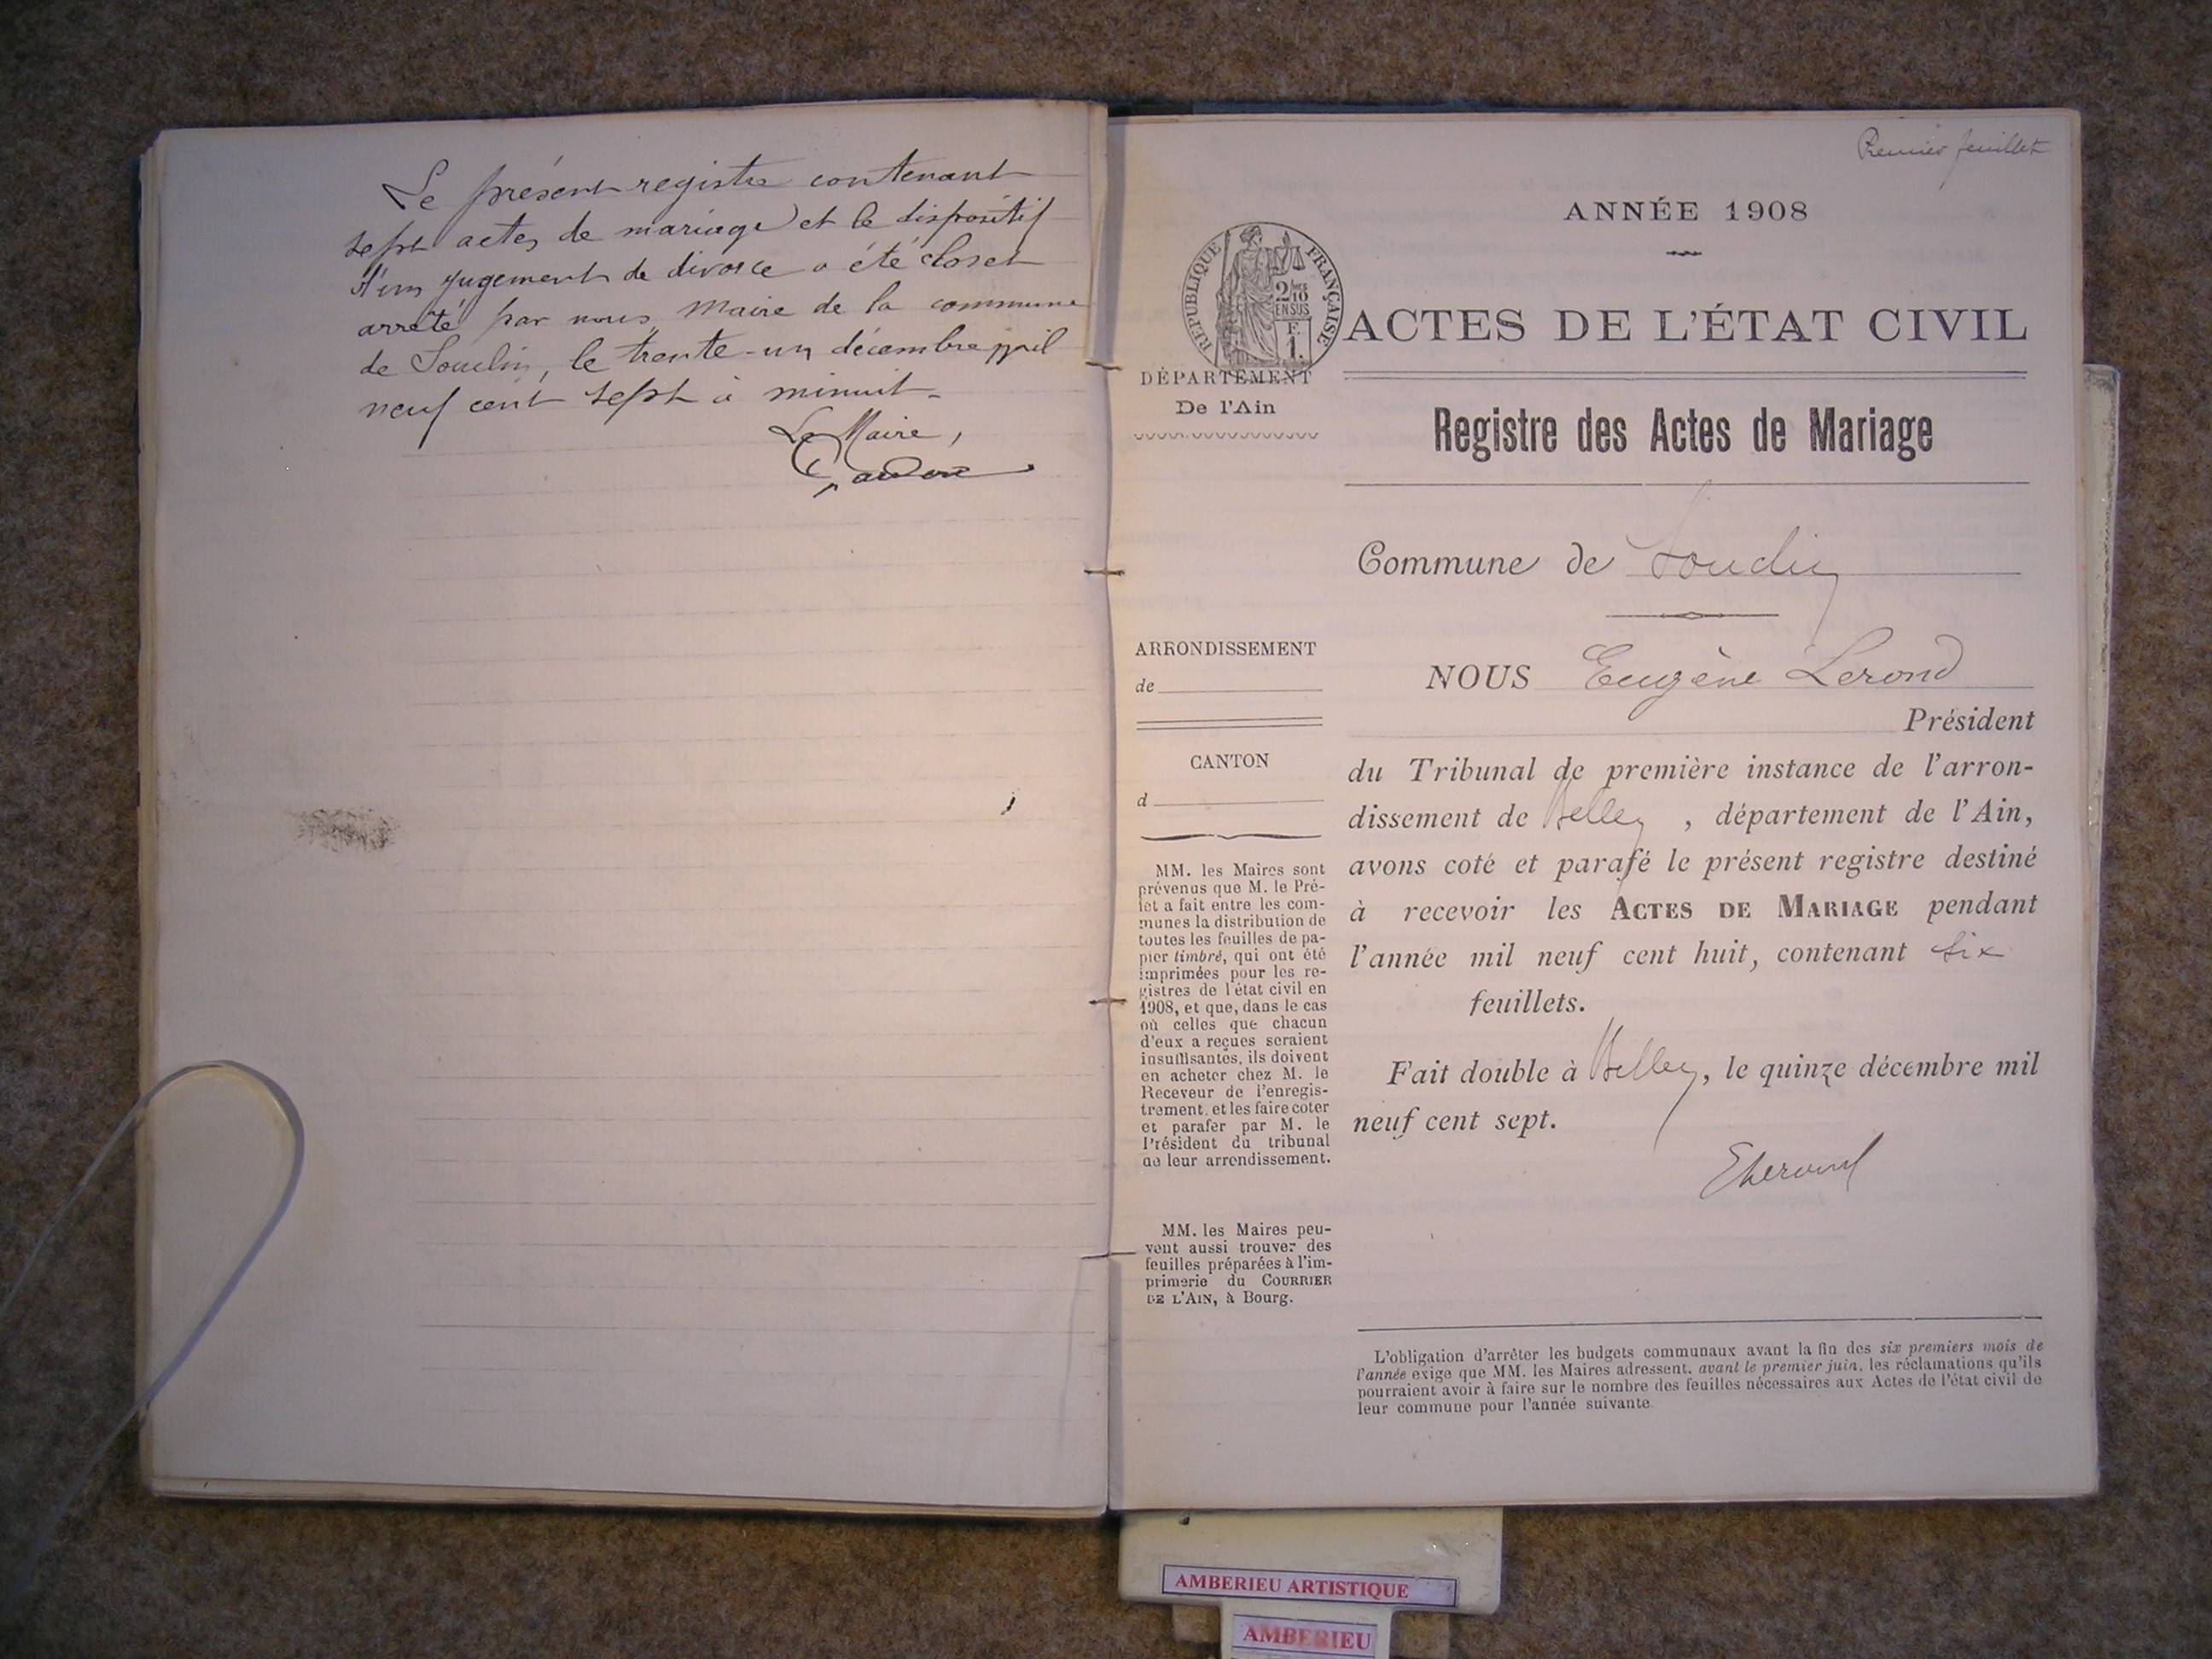 Le présent registre contenant
sept actes de mariage et le dispositif
d'un jugement de divorce a été clos et
arrêté par nous Maire de la commune
de Souclin, le trente-un décembre mil
neuf cent sept à minuit.
Le Maire,
Premier feuillet
ANNÉE 1908
RÉPUBLIQUE FRANÇAISE
2/10
EN SUS
F.
1.
ACTES DE L'ÉTAT CIVIL
DÉPARTEMENT
De l'Ain
Registre des Actes de Mariage
Commune de Souclin
ARRONDISSEMENT
de
CANTON
d
MM. les Maires sont
prévenus que M. le Pré-
fet a fait entre les com-
munes la distribution de
toutes les feuilles de pa-
pier timbré, qui ont été
imprimées pour les re-
gistres de l'état civil en
1908, et que, dans le cas
où celles que chacun
d'eux a reçues seraient
insuffisantes, ils doivent
en acheter chez M. le
Receveur de l'enregis-
trement, et les faire coter
et parafer par M. le
Président du tribunal
de leur arrondissement.
MM. les Maires peu-
vent aussi trouver des
feuilles préparées à l'im-
primerie du COURRIER
DE L'AIN, à Bourg.
NOUS Eugène Lerond
Président
du Tribunal de première instance de l'arron-
dissement de Belley , département de l'Ain,
avons coté et parafé le présent registre destiné
à recevoir les ACTES DE MARIAGE pendant
l'année mil neuf cent huit, contenant six
feuillets.
Fait double à Belley, le quinze décembre mil
neuf cent sept.
ELerond
L'obligation d'arrêter les budgets communaux avant la fin des six premiers mois de
l'année exige que MM. les Maires adressent, avant le premier juin, les réclamations qu'ils
pourraient avoir à faire sur le nombre des feuilles nécessaires aux Actes de l'état civil de
leur commune pour l'année suivante.
AMBERIEU ARTISTIQUE
AMBERIEU